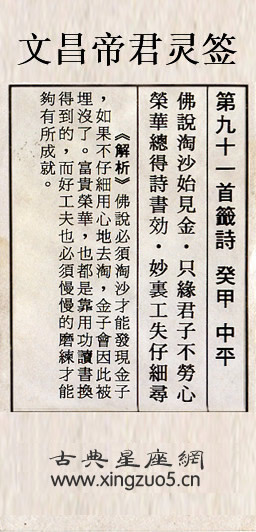 文昌帝君灵签
第九十一首籤詩 癸甲 中平
佛說淘沙始見金·只緣君子不勞心
榮華總得詩書効·妙裏工夫仔細尋
《解析》佛說必須淘沙才能發現金子
，如果不仔細用心地去淘，金子會因此被
埋沒了。富貴榮華，也都是靠用功讀書換
得到的，而好工夫也必須慢慢的磨練才能
夠有所成就。
古典星座網
www.xingzuo5.cn